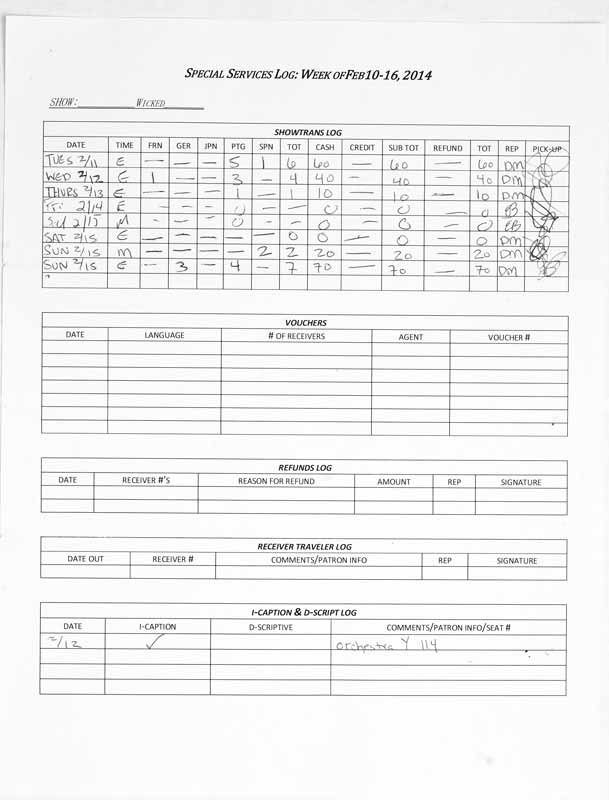 SPECIAL SERVICES LOG: WEEK OF FEB 10-16, 2014
SHOW: WICKED
SHOWTRANS LOG
DATE TIME FRN GER JPN PTG SPN TOT CASH CREDIT SUB TOT REFUND TOT REP PICK-UP
TUES 2/11 E — — — 5 1 6 60 — 60 — 60 DM
WED 2/12 E 1 — — 3 — 4 40 — 40 — 40 DM
THURS 2/13 E — — — 1 — 1 10 — 10 — 10 DM
Fri 2/14 E — — — 0 — — 0 — 0 — 0
Sat 2/15 M — — — 0 — — 0 — 0 — 0
SAT 2/15 E — — — — — 0 0 — 0 — 0 DM
SUN 2/15 M — — — — 2 2 20 — 20 — 20 DM
SUN 2/15 E — 3 — 4 — 7 70 — 70 — 70 DM
VOUCHERS
DATE LANGUAGE # OF RECEIVERS AGENT VOUCHER #
REFUNDS LOG
DATE RECEIVER #'S REASON FOR REFUND AMOUNT REP SIGNATURE
RECEIVER TRAVELER LOG
DATE OUT RECEIVER # COMMENTS/PATRON INFO REP SIGNATURE
I-CAPTION & D-SCRIPT LOG
DATE I-CAPTION D-SCRIPTIVE COMMENTS/PATRON INFO/SEAT #
2/12 ✓ Orchestra Y 114